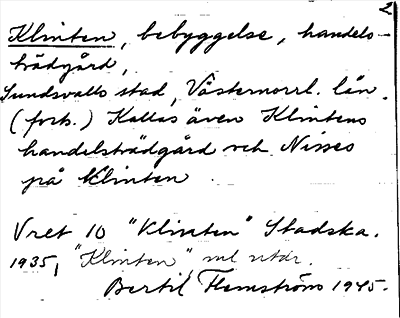 2
Klinten, bebyggelse, handels-
trädgård,
Sundsvalls stad, Västernorrl. län.
(forts.) Kallas även Klintens
handelsträdgård och Nisses
på Klinten.
Vret 10 "Klinten" Stadska.
1935, "Klinten", enl utdr.
Bertil Flemström 1945.